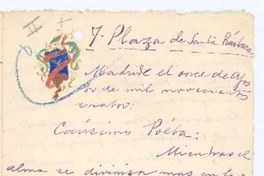 7- Plaza de Santa Bárbara
Madrid el once de Ago
to de mil novecientos
cuatro:
Carísimo Poéta:
Mientras el
alma se divisa mas en la